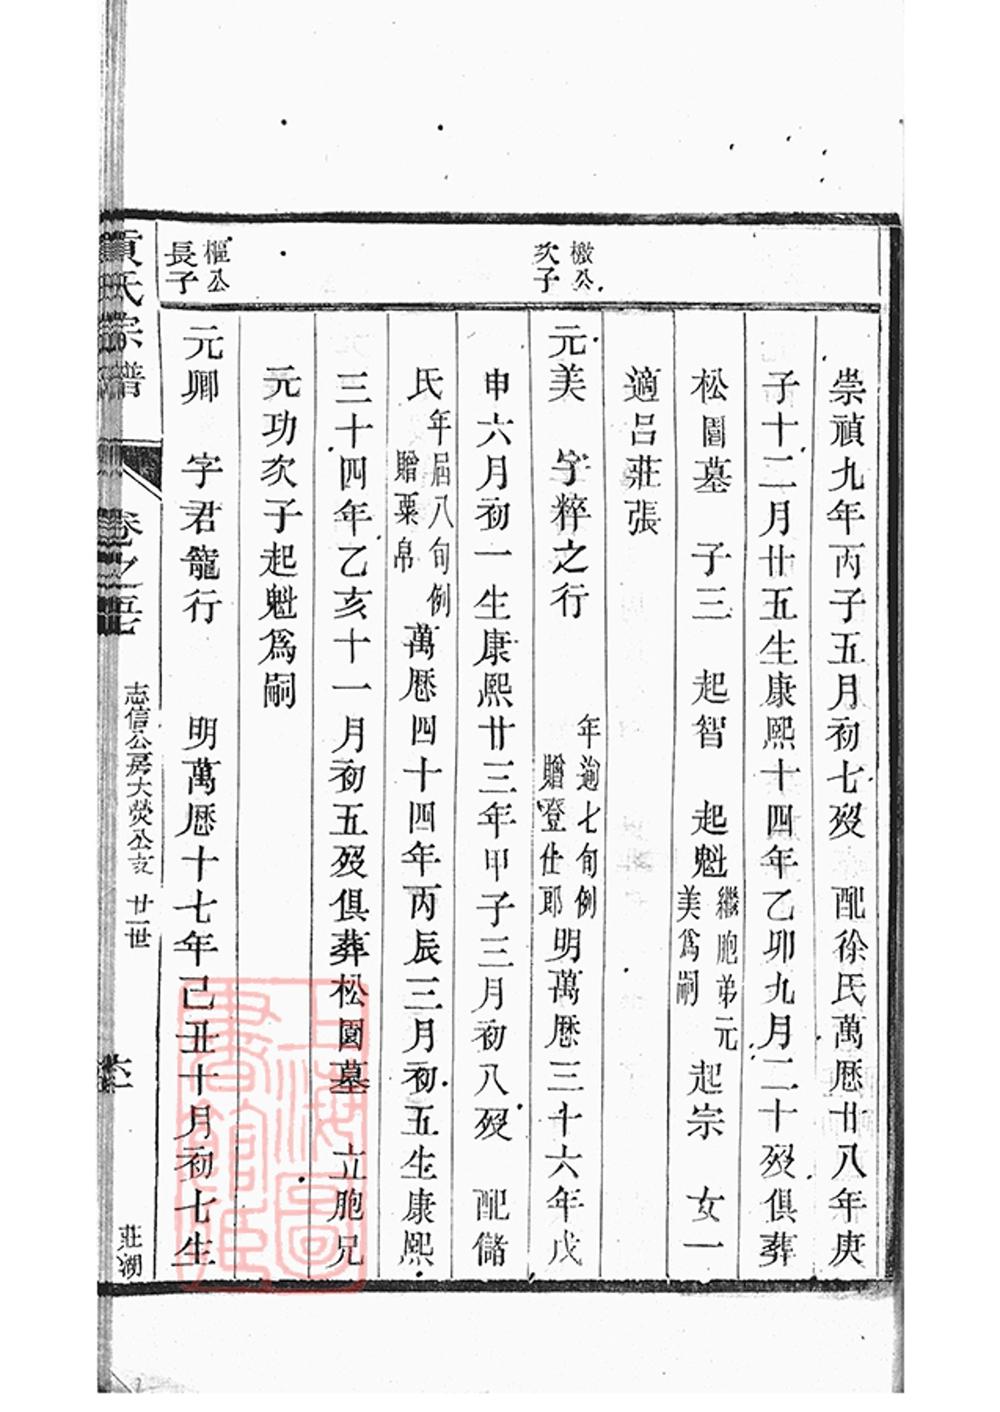 崇禎九年丙子五月初七殁　配徐氏萬厯廿八年庚
子十二月廿五生康熙十四年乙卯九月二十殁俱葬
松園墓　子三　起智　起魁繼胞弟元美爲嗣　起宗　女一
適呂莊張
檄公次子
元美　字粹之行　年逾七旬例贈登仕郎明萬厯三十六年戊
申六月初一生康熙廿三年甲子三月初八殁　配儲
氏年屆八旬例贈粟帛萬厯四十四年丙辰三月初五生康熙
三十四年乙亥十一月初五殁俱葬松園墓　立胞兄
元功次子起魁爲嗣
樞公長子
元卿　字君寵行　明萬厯十七年己丑十月初七生
氏宗譜
卷之
志信公房大熒公支　廿一世
莊湖
上海圖書館藏